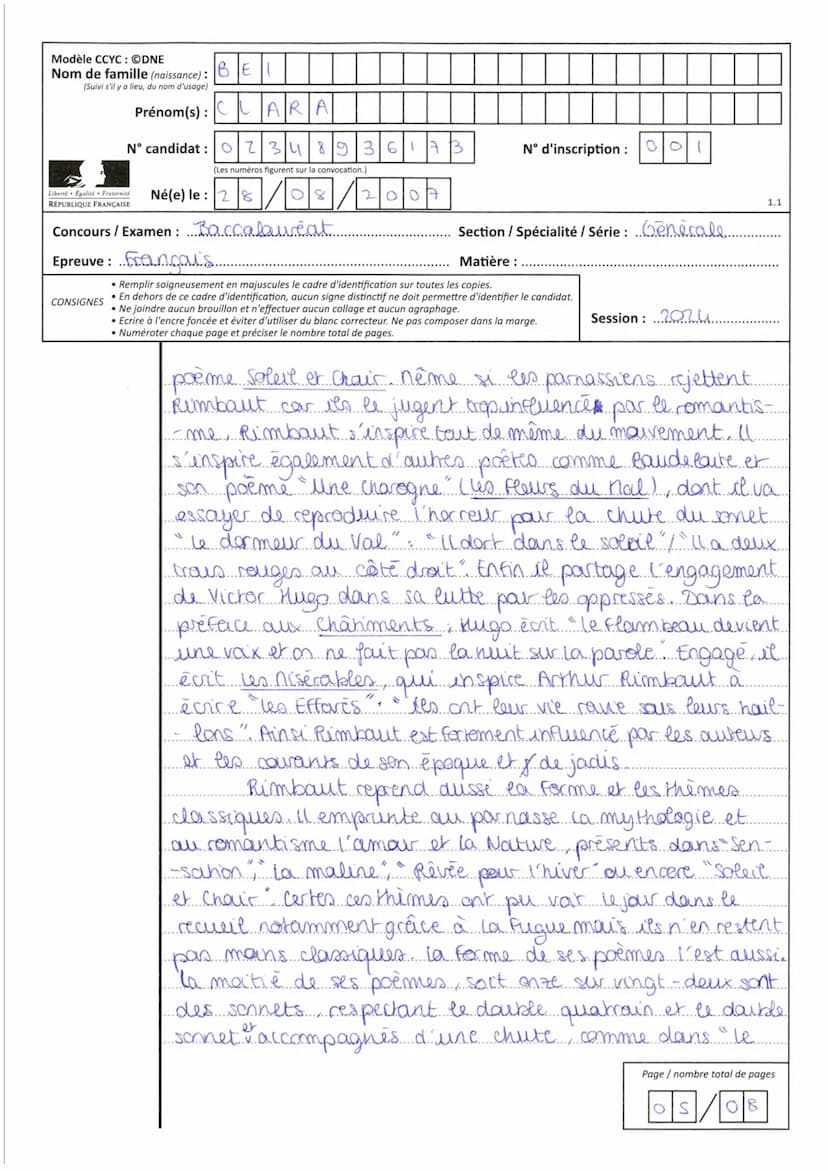 Modèle CCYC : ©DNE
Nom de famille (naissance) : BEI
(Suivi s'il y a lieu, du nom d'usage)
Prénom(s) : CLARA
N° candidat : 02348936173 N° d'inscription : 001
(Les numéros figurent sur la convocation.)
Né(e) le : 28/08/2007
Liberté • Égalité • Fraternité
RÉPUBLIQUE FRANÇAISE
1.1
Concours / Examen : Baccalauréat Section / Spécialité / Série : Générale
Epreuve : Français Matière :
CONSIGNES
• Remplir soigneusement en majuscules le cadre d'identification sur toutes les copies.
• En dehors de ce cadre d'identification, aucun signe distinctif ne doit permettre d'identifier le candidat.
• Ne joindre aucun brouillon et n'effectuer aucun collage et aucun agraphage.
• Ecrire à l'encre foncée et éviter d'utiliser du blanc correcteur. Ne pas composer dans la marge.
• Numéroter chaque page et préciser le nombre total de pages.
Session : 2024
poème Soleil et Chair. Même si les parnassiens rejettent
Rimbaut car ils le jugent trop influencé par le romantis-
-me, Rimbaut s'inspire tout de même du mouvement. Il
s'inspire également d'autres poètes comme Baudelaire et
son poème "Une Charogne" (Les Fleurs du Mal), dont il va
essayer de reproduire l'horreur pour la chute du sonnet
"Le dormeur du Val" : "Il dort dans le soleil"/"Il a deux
trous rouges au côté droit". Enfin il partage l'engagement
de Victor Hugo dans sa lutte par les oppressés. Dans la
préface aux Châtiments, Hugo écrit "le flambeau devient
une voix et on ne fait pas la nuit sur la parole". Engagé, il
écrit Les Misérables, qui inspire Arthur Rimbaut à
écrire "Les Effarés" : "Ils ont leur vie sous leurs hail-
-lons". Ainsi Rimbaut est fortement influencé par les auteurs
et les courants de son époque et de jadis.
Rimbaut reprend aussi la forme et les thèmes
classiques. Il emprunte au parnasse la mythologie et
au romantisme l'amour et la Nature, présents dans "Sen-
-sation", "La maline", "Rêvée pour l'hiver" ou encore "Soleil
et Chair". Certes ces thèmes ont pu voir le jour dans le
recueil notamment grâce à la Fugue mais ils n'en restent
pas moins classiques. La forme de ses poèmes l'est aussi.
La moitié de ses poèmes, soit onze sur vingt-deux sont
des sonnets, respectant le double quatrain et le double
sonnet et accompagnés d'une chute, comme dans "Le
Page / nombre total de pages
05/08